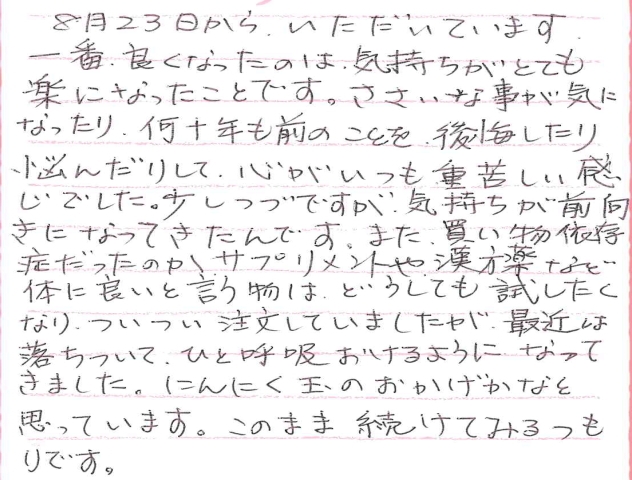 8月23日から、いただいています。
一番、良くなったのは、気持ちがとても
楽になったことです。ささいな事が気に
なったり、何十年も前のことを、後悔したり
悩んだりして、心がいつも重苦しい感
じでした。少しづつですが、気持ちが前向
きになってきたんです。また、買い物依存
症だったのか、サプリメントや漢方薬など
体に良いと言う物は、どうしても試したく
なり、ついつい注文していましたが、最近は
落ちついて、ひと呼吸おけるようになって
きました。にんにく玉のおかげかなと
思っています。このまま続けてみるつも
りです。